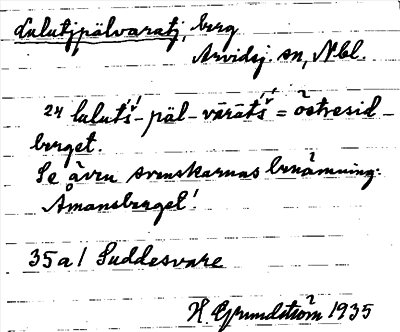 Lulutjpälvaratj, berg
Arvidsj. sn, Nbl.
24 lulut́š́-päl-vārātš́́ = östresid-
berget.
Se även svenskarnas benämning:
Åmansberget!
35a/ Suddesvare
H. Grundström 1935